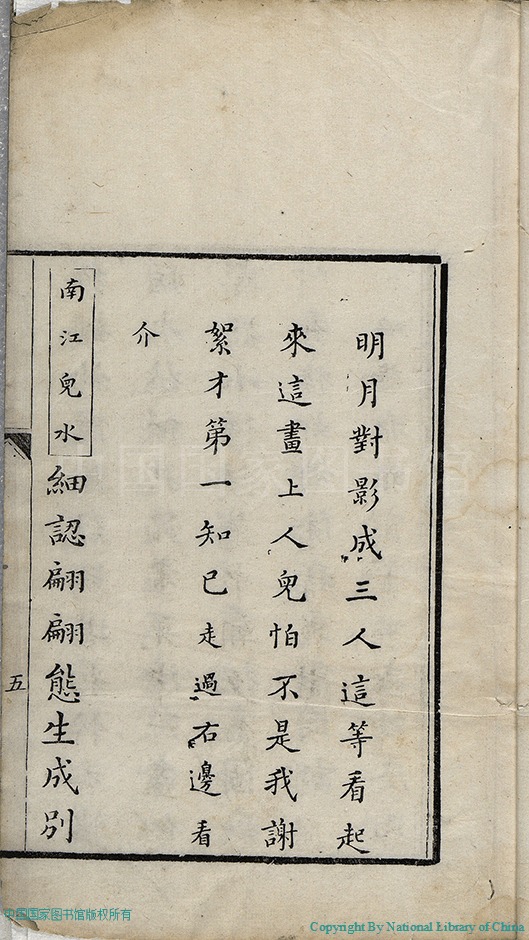 明月對影成三人這等看起
來這畫上人兒怕不是我謝
絮才第一知己走過右邊看
介
南江兒水
細認翩翩態生成別
五
中国国家图书馆版权所有
Copyright By National Library of China